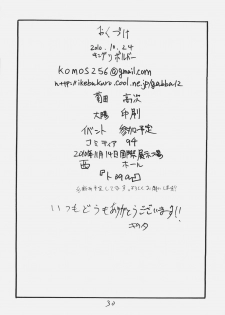 おくづけ
2010.10.24
キングリボルバー
komos256@gmail.com
http://ikebukuro.cool.ne.jp/gabba12
菊田 高次
太陽 印刷
イベント 参加予定
コミティア 94
2010年11月14日 国際展示場
西 ホール
いつもどうもありがとうございます!!
30